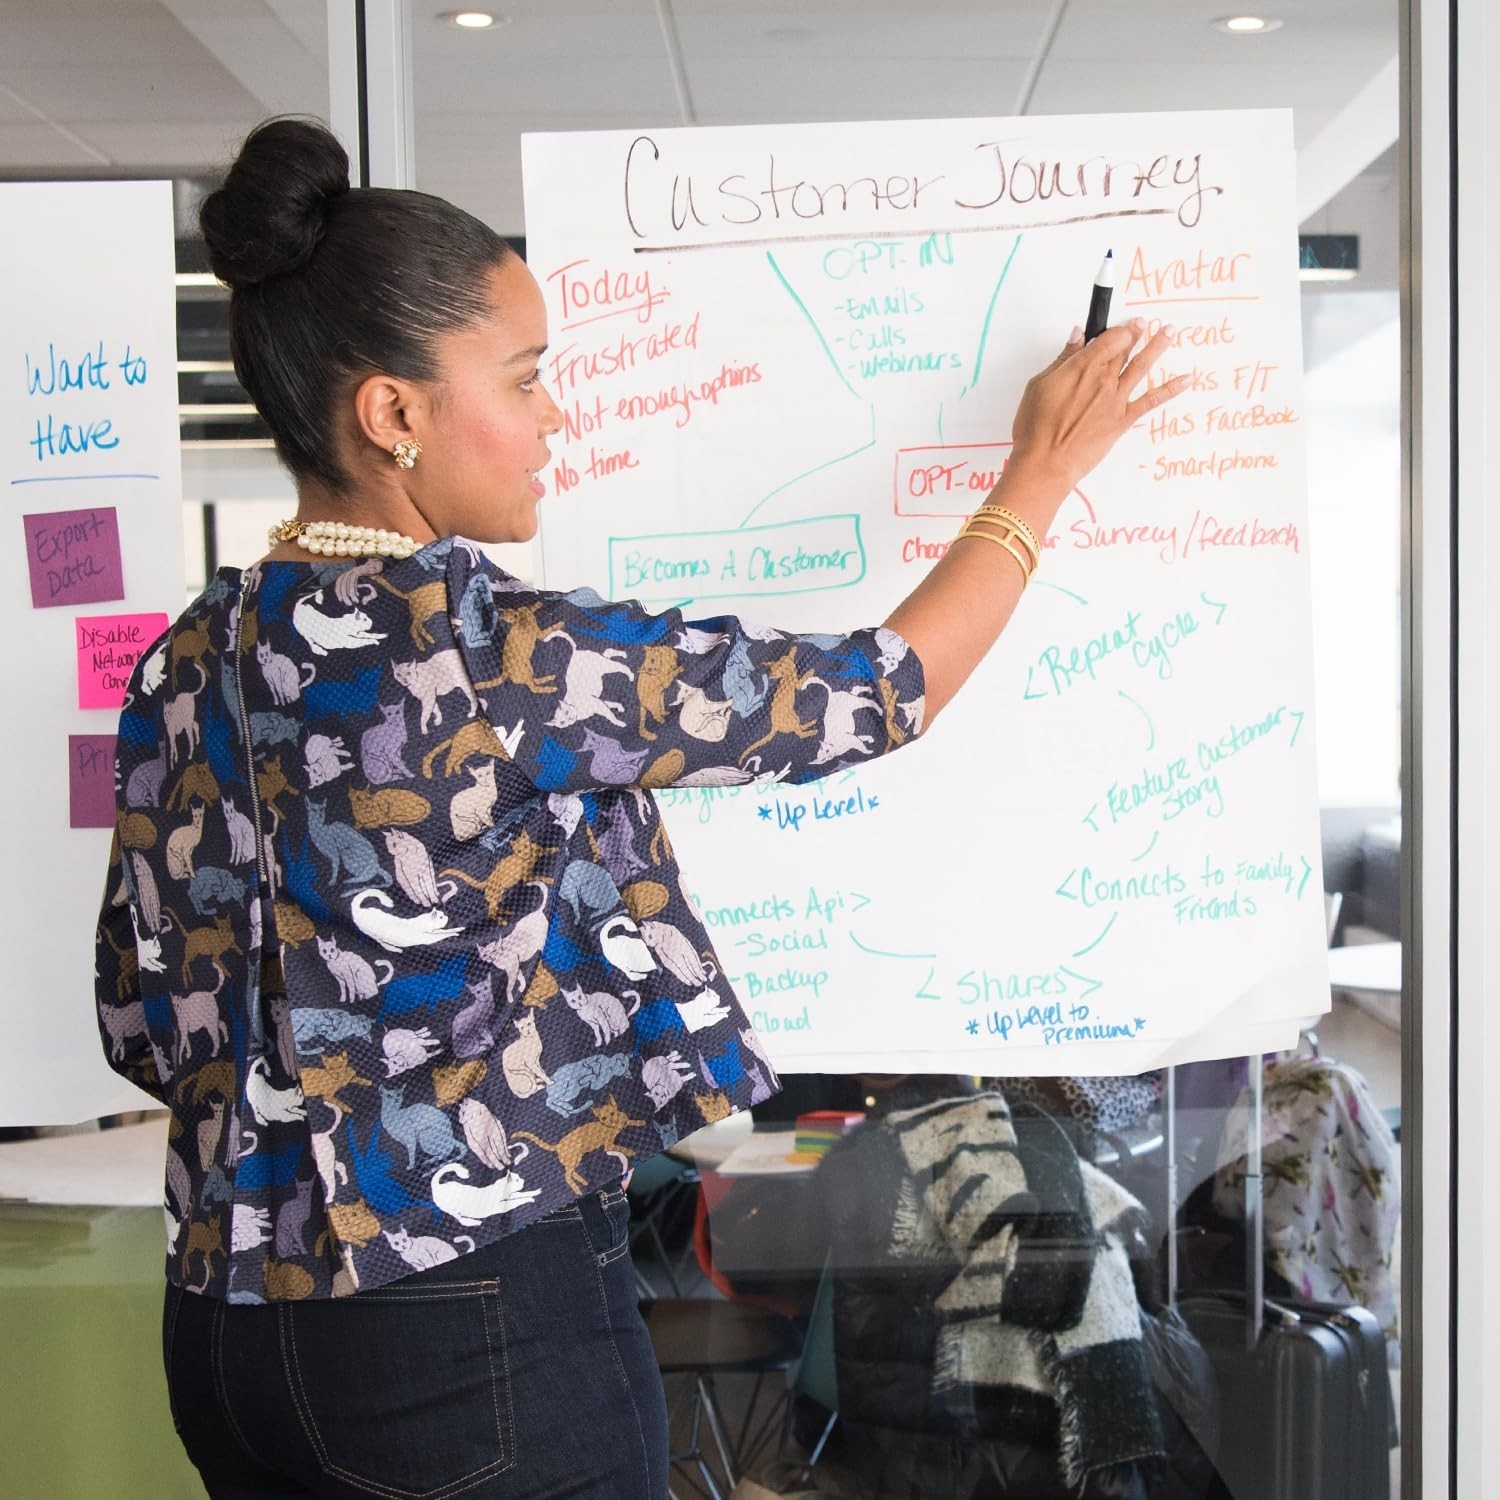 Want to
Have
Export
Data
Disable
Pri
Customer Journey
Today:
Frustrated
Not enough options
No time
OPT-IN
-Emails
-Calls
-Webinars
Avatar
Parent
Works F/T
-Has FaceBook
-Smartphone
OPT-out
Survey/feedback
Becomes A Customer
<Repeat
cycle>
<Feature Customer>
Story
*Up Level*
<Connects to Family>
Friends
onnects Api>
-Social
-Backup
Cloud
<Shares>
*Up Level to
Premium*